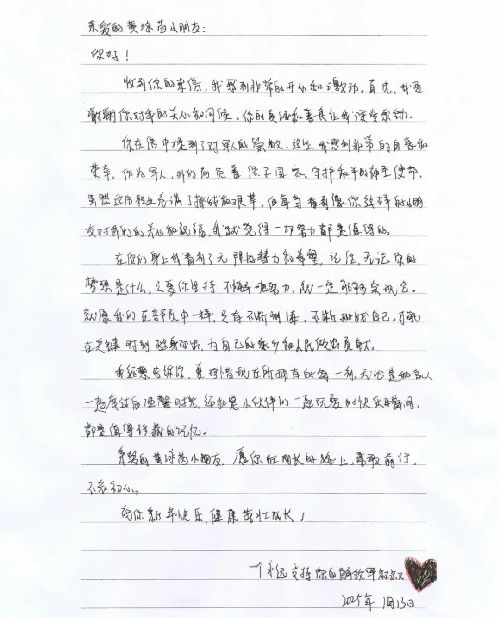 亲爱的黄梓茵小朋友：
你好！
收到你的来信，我感到非常的开心和激动，首先，我要
感谢你对我的关心和问候，你的真诚和善良让我深受感动。
你在信中提到了对军人的崇敬，这让我感到非常的自豪和
荣幸，作为军人，我们肩负着保卫国家、守护和平的神圣使命，
虽然这份职业充满了挑战和艰辛，但每当看到像你这样的小朋
友对我们的关心和祝福，我就觉得一切努力都是值得的。
在你的身上我看到了无限的潜力和希望，记住，无论你的
梦想是什么，只要你坚持不懈地努力，就一定能够实现它。
就像我们在部队中一样，只有不断训练，不断挑战自己，才能
在关键时刻挺身而出，为自己的家乡和人民做出贡献。
我还要告诉你，要珍惜现在所拥有的每一刻，无论是和家人
一起度过的温馨时光，还是和小伙伴们一起玩耍的快乐瞬间，
都是值得珍藏的记忆。
亲爱的黄梓茵小朋友，愿你在成长的路上，勇敢前行，
不忘初心。
祝你新年快乐，健康茁壮成长！
一个永远支持你的解放军叔叔
2025年1月13日